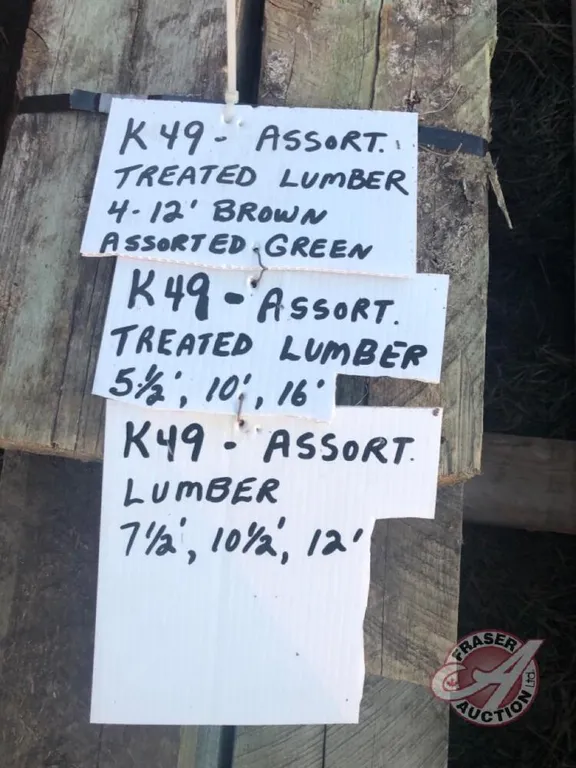 K49 - ASSORT.
TREATED LUMBER
4-12' BROWN
ASSORTED GREEN
K49 - ASSORT.
TREATED LUMBER
5½', 10', 16'
K49 - ASSORT.
LUMBER
7½', 10½', 12'
FRASER
AUCTION
Ltd